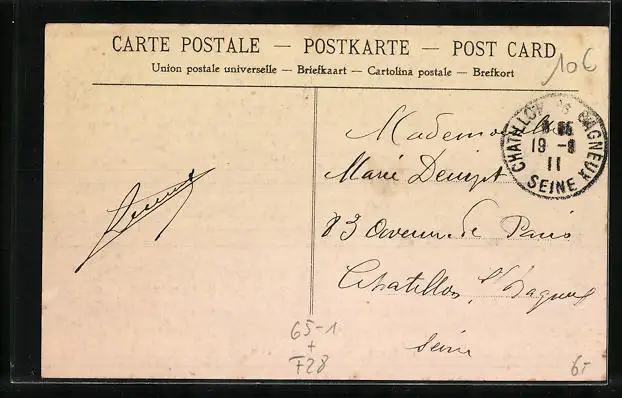 CARTE POSTALE — POSTKARTE — POST CARD
Union postale universelle — Briefkaart — Cartolina postale — Brefkort
106
CHATILLON S BAGNEUX
19 - 8
11
SEINE
Mademoiselle
Marie
83 Avenue de Paris
Chatillon s/ Bagneux
Seine
65-1
+
F28
6-